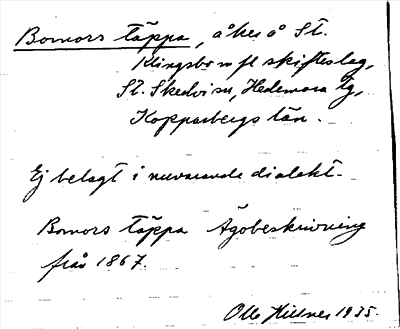 Bomors täppa, åker å St.
Klingsbo m fl skifteslag,
St. Skedvi sn, Hedemora tg,
Kopparbergs län.
Ej belagt i nuvarande dialekt.
Bomors täppa Ägobeskrivning
från 1867.
Olle Hillner 1935.